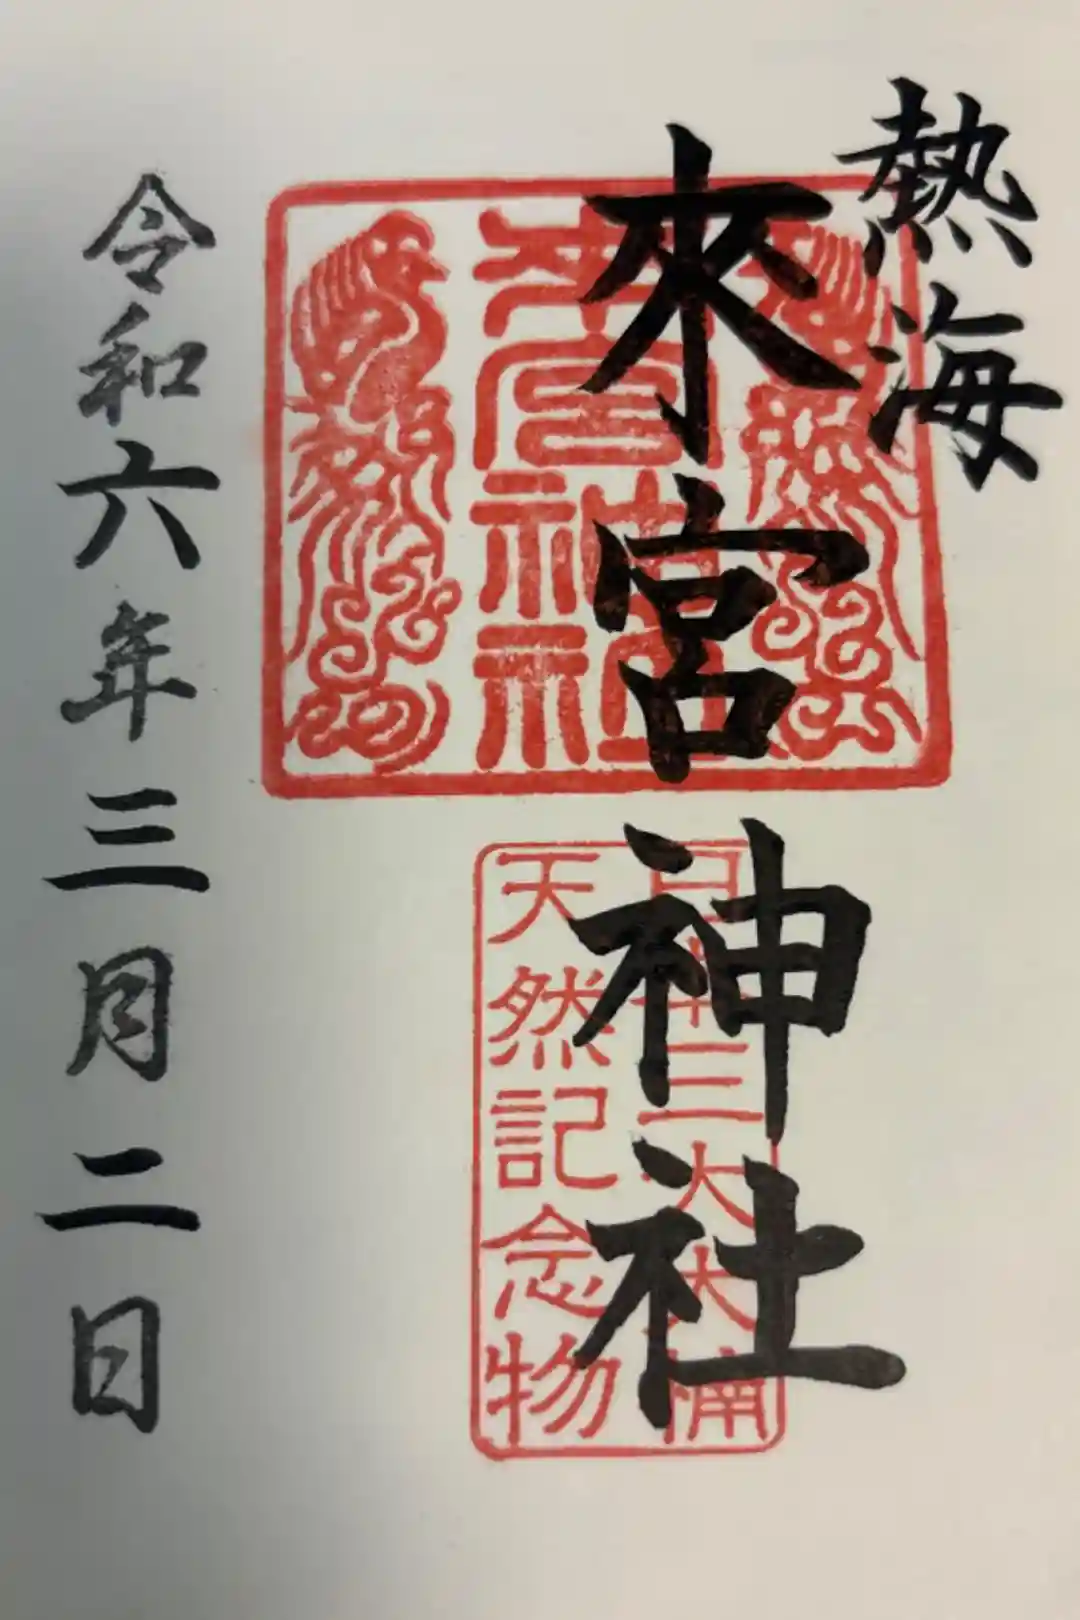 熱海
來宮神社
來宮
神社
日本三大大楠
天然記念物
令和六年三月二日